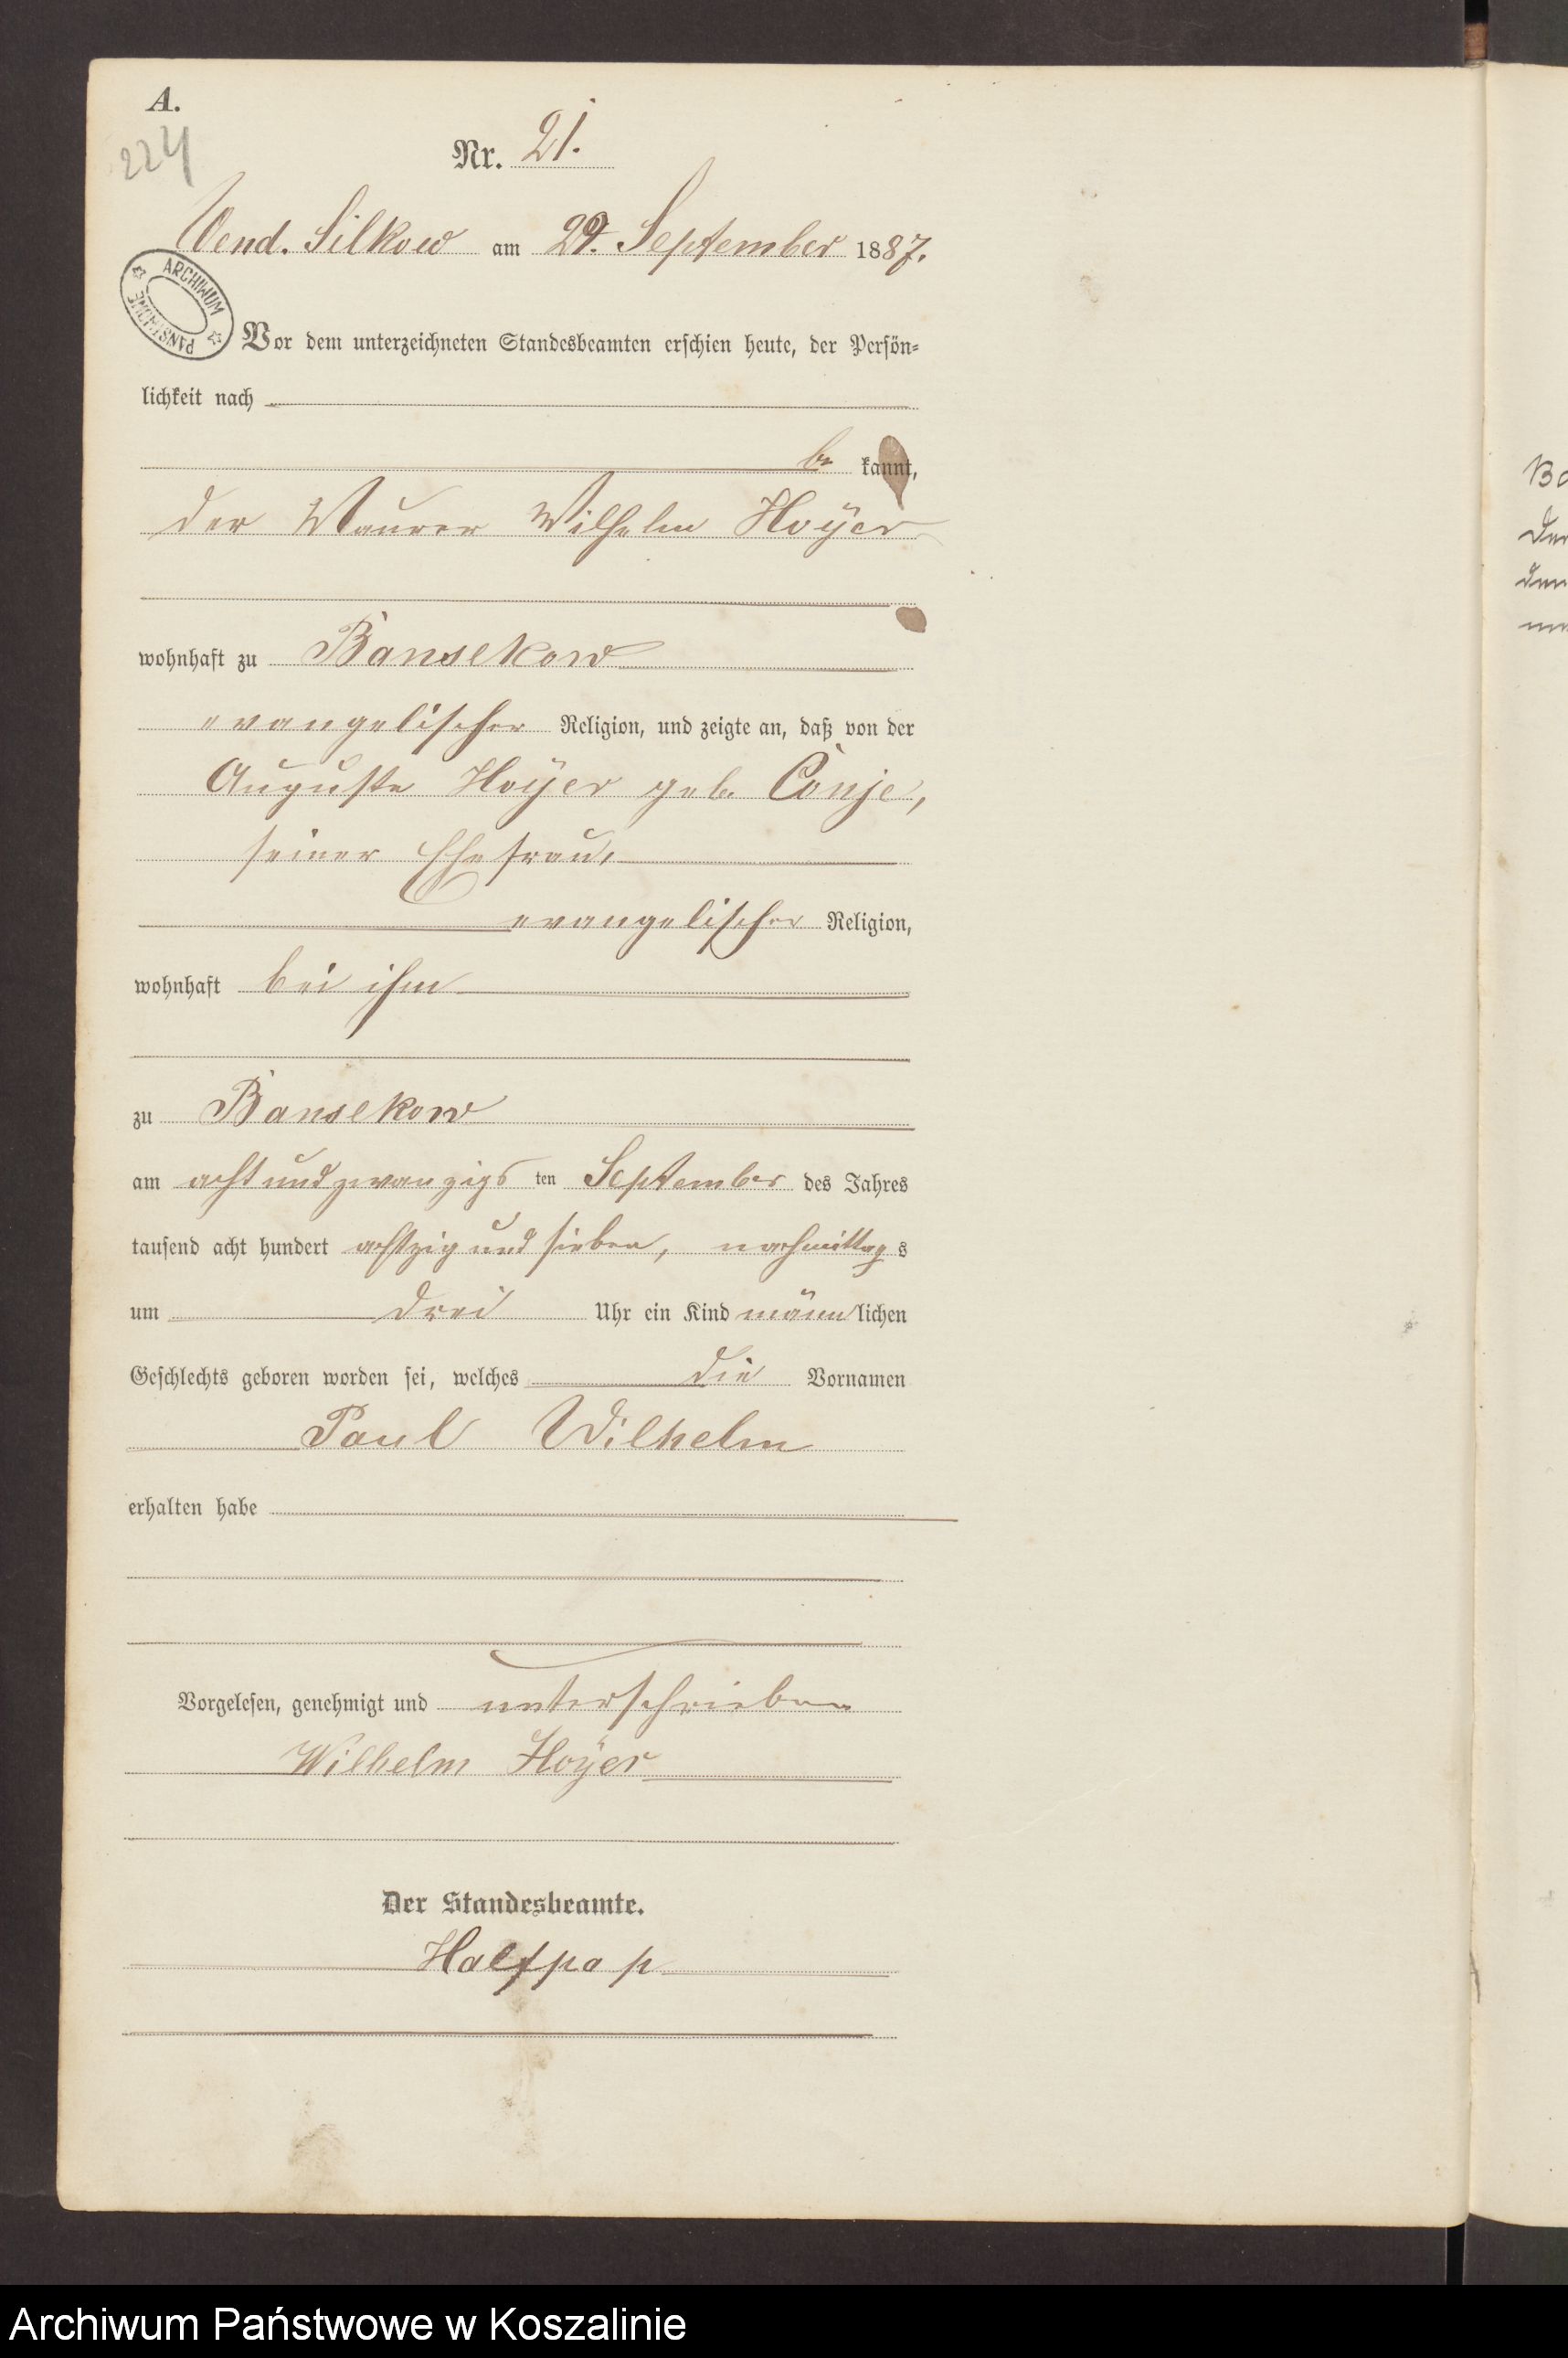 A.
224
Nr. 21.
Wend. Silkow am 29. September 1887.
ARCHIWUM PAŃSTWOWE
Vor dem unterzeichneten Standesbeamten erschien heute, der Persön-
lichkeit nach
be kannt,
der Maurer Wilhelm Hoÿer
wohnhaft zu Bansekow
evangelischer Religion, und zeigte an, daß von der
Auguste Hoÿer geb. Conje,
seiner Ehefrau,
evangelischer Religion,
wohnhaft bei ihm
zu Bansekow
am acht und zwanzigs ten September des Jahres
tausend acht hundert achtzig und sieben, nachmittag s
um drei Uhr ein Kind männ lichen
Geschlechts geboren worden sei, welches die Vornamen
Paul Wilhelm
erhalten habe
Vorgelesen, genehmigt und unterschrieben
Wilhelm Hoÿer
Der Standesbeamte.
Halfpap
Archiwum Państwowe w Koszalinie